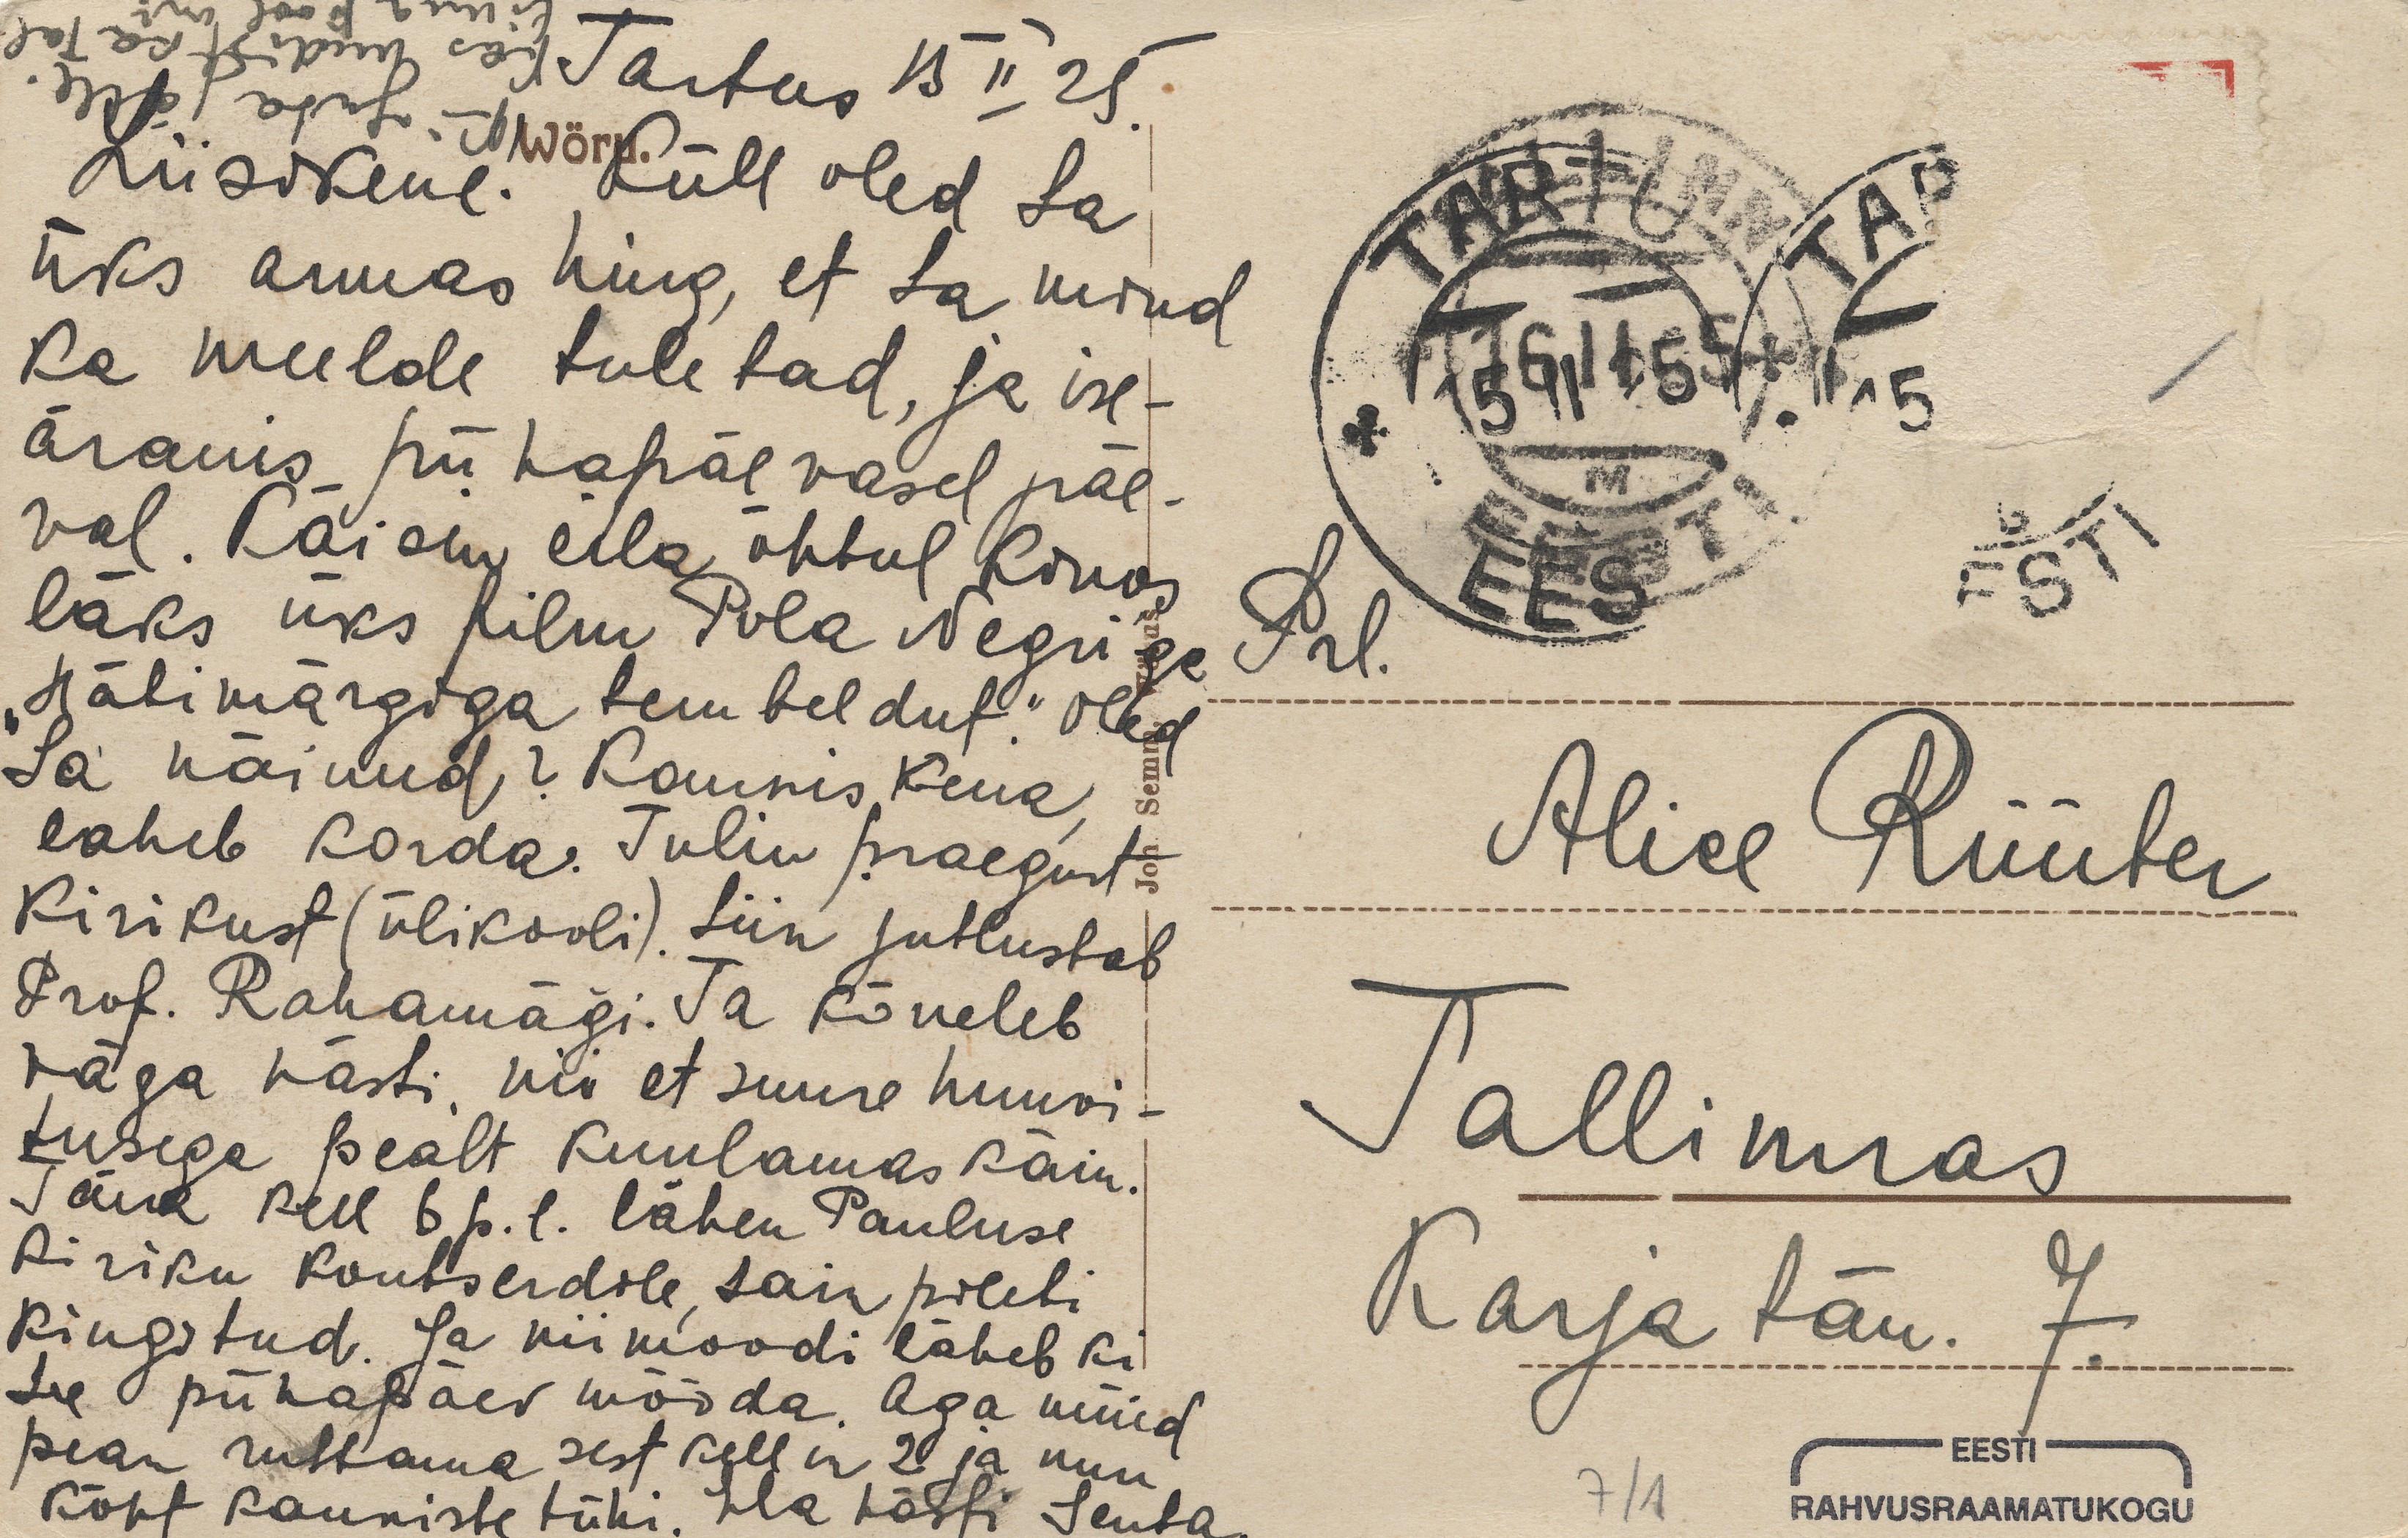 Tartus 15 II 25.
Wöru.
Liisokene. Küll oled Sa
üks armas hing, et Sa mind
ka meelde tuletad, ja ise-
äranis pühapäevasel päe-
val. Käisin eila õhtul kinos
läks üks film Pola Negriga
„Häbimärgiga tembeldut." Oled
Sa näinud? Kaunis kena,
läheb korda. Tulin praegust
kirikust (ülikooli). Siin jutlustab
Prof. Rahamägi. Ta kõneleb
väga hästi, nii et suure huvi-
tusega pealt kuulamas käin.
Täna kell 6 p.l. lähen Pauluse
kiriku kontserdile, sain pileti
kingitud. Ja niimoodi läheb ki
see pühapäev mööda. Aga nüüd
pean ruttama sest kell on 2 ja mu
kõht kauniste tühi. Ela hästi Senta.
kas
ka Tal
Juta jälle.
Joh Semm, Wõrus
TARTU
TALLINN
EESTI
16 II 25
15 II 25
M
TAR
II 25
EESTI
Prl.
Alice Rüüter
Tallinnas
Karja tän. 7.
7/1
EESTI
RAHVUSRAAMATUKOGU